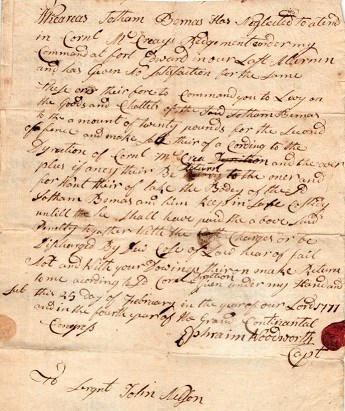 Whareas Jotham Bemas Has Neglected to atend
in Cornl McCreays Redgement under my
Command at fort Edward in our Last Allerum
and has Given No Sattisfaction for the Same
these are their fore to Command you to Levy on
the Goods and Chattels of the Said Jotham Bemas
to the amount of twenty pounds for the Second
offence and make Sale their of a Cording to the
Dyration of Cornl McCrea and the over
plus if aney their Be Return to the oner and
for want their of take the Bodey of the Sd
Jotham Bemas and him keep in Safe Costidy
untill he Shall have paid the above Said
Penelty together with the Cost Charges or be
Discharged By Due Cose of Law hear of fail
Not and With your Dowings their on make Return
to me acording to Given under my Hand and
this 25 day of February in the year of our Lord 17
and in the fourth year of the Grand Continantal
Congress
Ephraim Woodworth
Capt
To Sergnt John Nelson